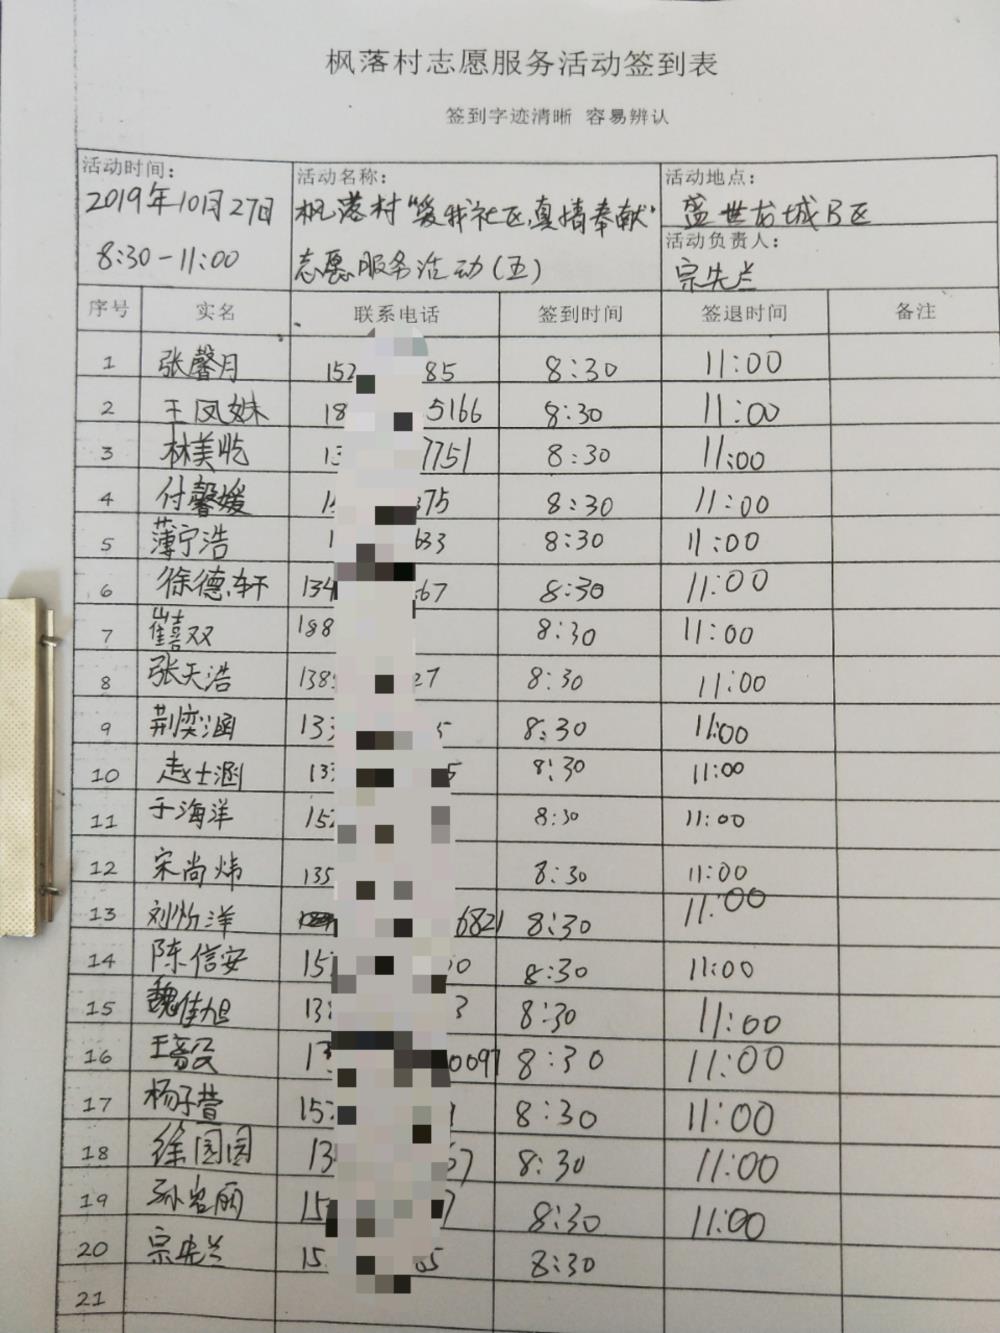 枫落村志愿服务活动签到表
签到字迹清晰 容易辨认
活动时间:
2019年10月27日
8:30-11:00
活动名称:
枫落村“爱我社区,真情奉献”
志愿服务活动(五)
活动地点:
盛世龙城B区
活动负责人:
宗先兰
序号 实名 联系电话 签到时间 签退时间 备注
1 张馨月 152 85 8:30 11:00
2 王凤妹 18 5166 8:30 11:00
3 林美 13 7751 8:30 11:00
4 付馨媛 1 75 8:30 11:00
5 薄宁浩 1 633 8:30 11:00
6 徐德轩 134 67 8:30 11:00
7 崔喜双 188 8:30 11:00
8 张天浩 138 27 8:30 11:00
9 荆奕涵 133 5 8:30 11:00
10 赵士涵 133 5 8:30 11:00
11 于海洋 152 8:30 11:00
12 宋尚炜 135 8:30 11:00
13 刘 洋 6821 8:30 11:00
14 陈信安 15 0 8:30 11:00
15 魏佳旭 13 3 8:30 11:00
16 王 13 0097 8:30 11:00
17 杨子萱 157 8:30 11:00
18 徐圆圆 13 67 8:30 11:00
19 孙岩丽 15 7 8:30 11:00
20 宗先兰 15 85 8:30
21